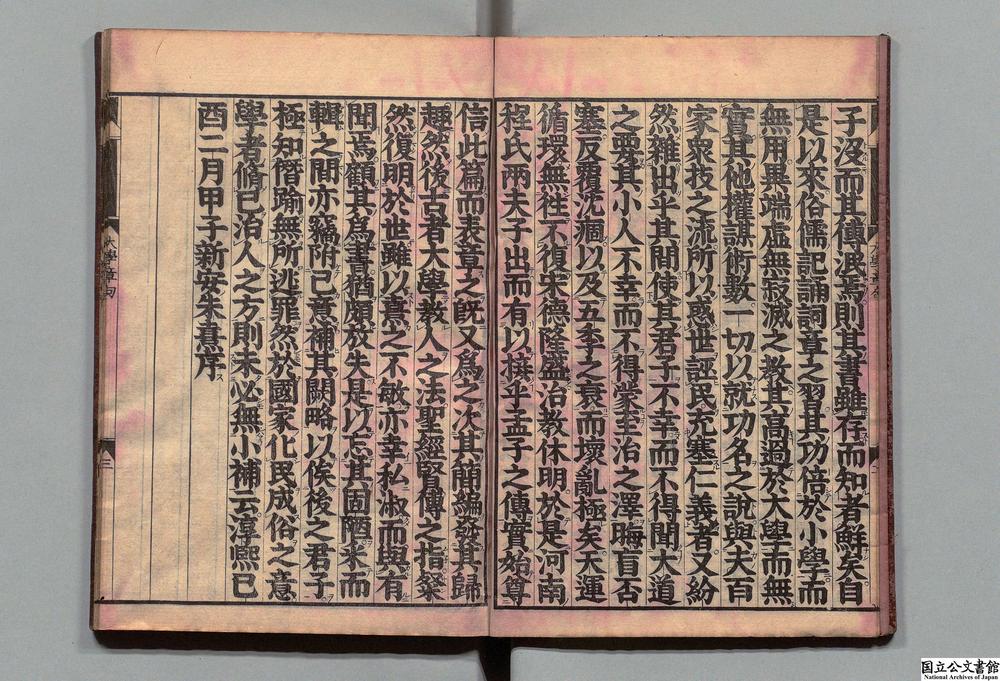 子沒而其傳泯焉則其書雖存而知者鮮矣自
是以來俗儒記誦詞章之習其功倍於小學而
無用異端虛無寂滅之教其高過於大學而無
實其他權謀術數一切以就功名之說與夫百
家衆技之流所以惑世誣民充塞仁義者又紛
然雜出乎其間使其君子不幸而不得聞大道
之要其小人不幸而不得蒙至治之澤晦盲否
塞反覆沈痼以及五季之衰而壞亂極矣天運
循環無徃不復宋德隆盛治教休明於是河南
程氏兩夫子出而有以接乎孟子之傳實始尊
信此篇而表章之旣又爲之次其簡編發其歸
趣然後古者大學教人之法聖經賢傳之指粲
然復明於世雖以熹之不敏亦幸私淑而與有
聞焉顧其爲書猶頗放失是以忘其固陋采而
輯之間亦竊附己意補其闕略以俟後之君子
極知僭踰無所逃罪然於國家化民成俗之意
學者脩己治人之方則未必無小補云淳熙己
酉二月甲子新安朱熹序
大學章句
三
国立公文書館
National Archives of Japan